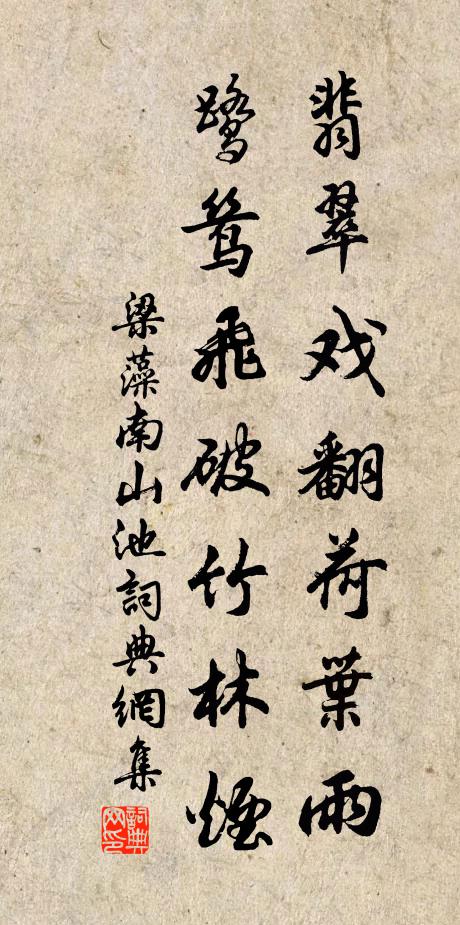 翡翠戏翻荷葉雨
鹭鸶飛破竹林煙
梁藻南山池詞典網集
詞典
网印